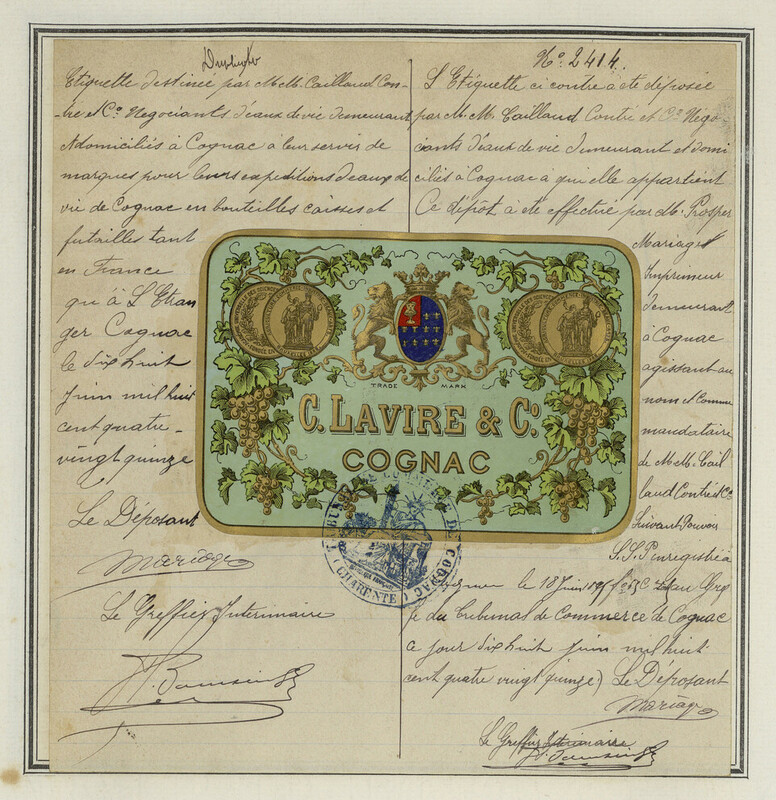 Duplicata
Etiquette destinée par M.M. Caillaud Con-
-tré et Co Négociants d'eaux de vie demeurant
et domiciliés à Cognac à leur servir de
marques pour leurs expeditions d'eaux de
vie de Cognac en bouteilles caisses et
futailles tant
en France
qu'à L'Etran
ger Cognac
le dix huit
Juin mil huit
cent quatre-
vingt quinze
Le Déposant
Mariage
Le Greffier Intérimaire
No. 2414.
L'Etiquette ci contre à été déposée
par M.M. Caillaud Contré et Co Négo-
ciants d'eaux de vie demeurant et domi
ciliés à Cognac à qui elle appartient
Ce dépôt à été effectué par M. Prosper
Mariage
Imprimeur
demeurant
à Cognac
agissant au
nom et comme
mandataire
de M.M. Cail
laud Contré et Co
Suivant Pouvoir
S.S.P. enregistré à
le 18 Juin
fe du Tribunal de Commerce de Cognac
ce jour dix huit juin mil huit
cent quatre vingt quinze) Le Déposant
Mariage
Le Greffier Intérimaire
TRADE MARK
C. LAVIRE & Co.
COGNAC
TRIBUNAL DE COMMERCE DE COGNAC
(CHARENTE)